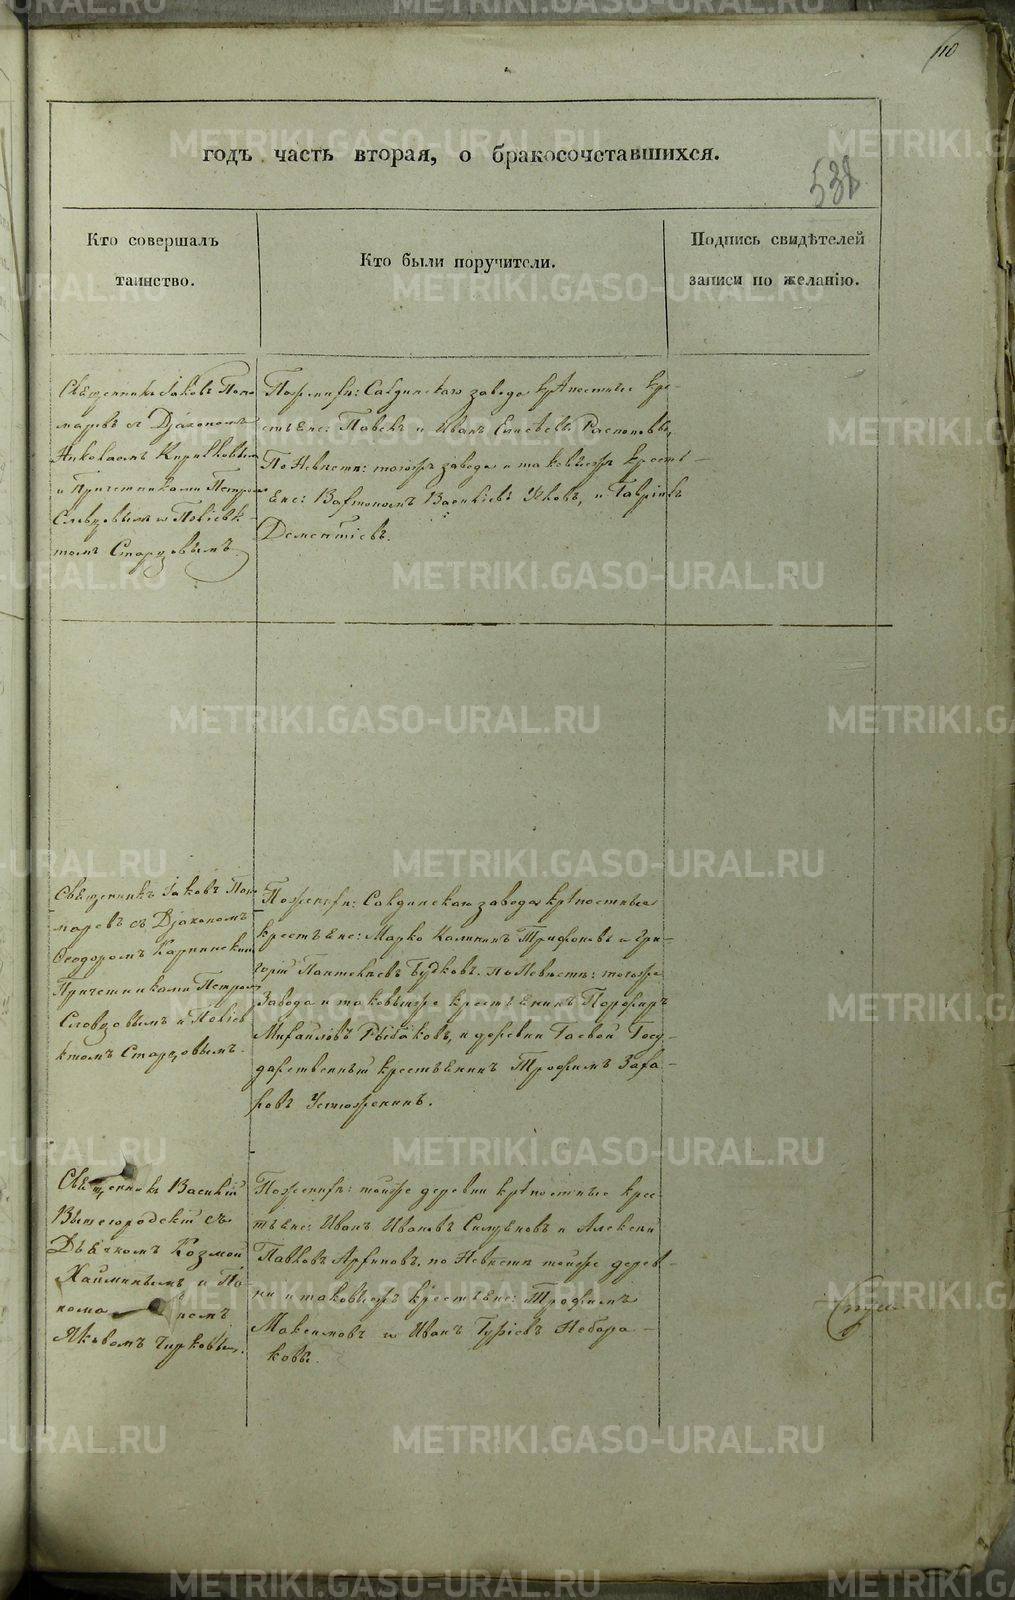 110
годъ часть вторая, о бракосочетавшихся.
538
Кто совершалъ
таинство.
Кто были поручители.
Подпись свидѣтелей
записи по желанію.
Священникъ Іаковъ Поно
маревъ съ Діакономъ
Николаемъ Кирилловымъ
и Причетниками Петромъ
Словцовымъ и Поліевк-
томъ Старцовымъ.
По женихѣ: Салдинскаго завода крѣпостные кре-
стьяне: Павелъ и Иванъ Елисѣевы Распоповы,
По Невѣстѣ: тогожъ завода и таковыежъ кресть-
яне: Васильевъ и Гаврилъ
Дементіевъ.
Священникъ Іаковъ Поно
маревъ съ Діакономъ
Ѳеодоромъ
Причетниками Петромъ
Словцовымъ и Поліев
ктомъ Старцовымъ.
По женихѣ: Салдинскаго завода крѣпостные
крестьяне: Марко Калининъ Трифоновъ и Гри-
горій Пантелѣевъ По Невѣстѣ: тогоже
Завода и таковыйже крестьянинъ Порфиръ
Михайловъ Рыбаковъ, и деревни Госу-
дарственный крестьянинъ Трофимъ Заха-
ровъ Устюжанинъ.
Священникъ Василій
Вышегородскій съ
Дьячкомъ Козмой
и По
номаремъ
Яковомъ Чирковымъ.
По женихѣ: тойже деревни крѣпостные крес-
тьяне: Иванъ Ивановъ и Алексѣй
Павловъ по Невѣстѣ тойже дерев-
ни и таковыежъ крестьяне: Трофимъ
Максимовъ и Иванъ
METRIKI.GASO-URAL.RU